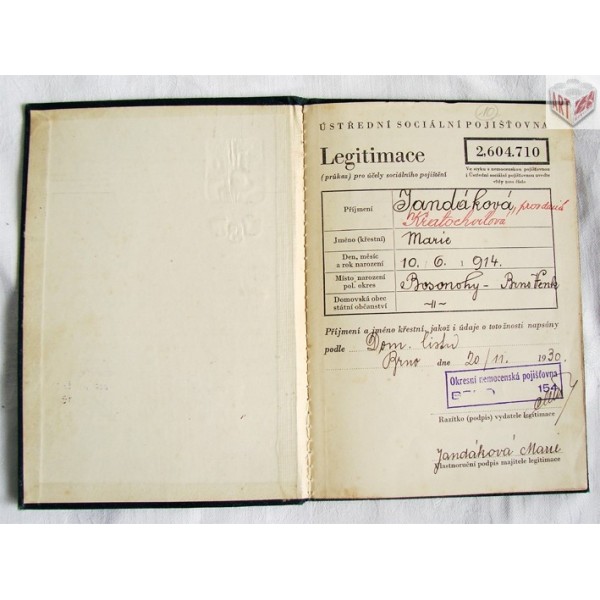 10
ÚSTŘEDNÍ SOCIÁLNÍ POJIŠŤOVNA
Legitimace
(průkaz) pro účely sociálního pojištění
2,604.710
Ve styku s nemocenskou pojišťovnou
i Ústřední sociální pojišťovnou uveďte
vždy toto číslo
Příjmení
Jandáková
provdaná
Kratochvilová
Jméno (křestní)
Marie
Den, měsíc
a rok narození
10. 6. 914.
Místo narození
pol. okres
Bosonohy - Brno Venk
Domovská obec
státní občanství
-"-
Příjmení a jméno křestní, jakož i údaje o totožnosti napsány
podle Dom. listu
Brno dne 20/11. 1930.
Okresní nemocenská pojišťovna
154
Razítko (podpis) vydatele legitimace
Jandáková Marie
Vlastnoruční podpis majitele legitimace